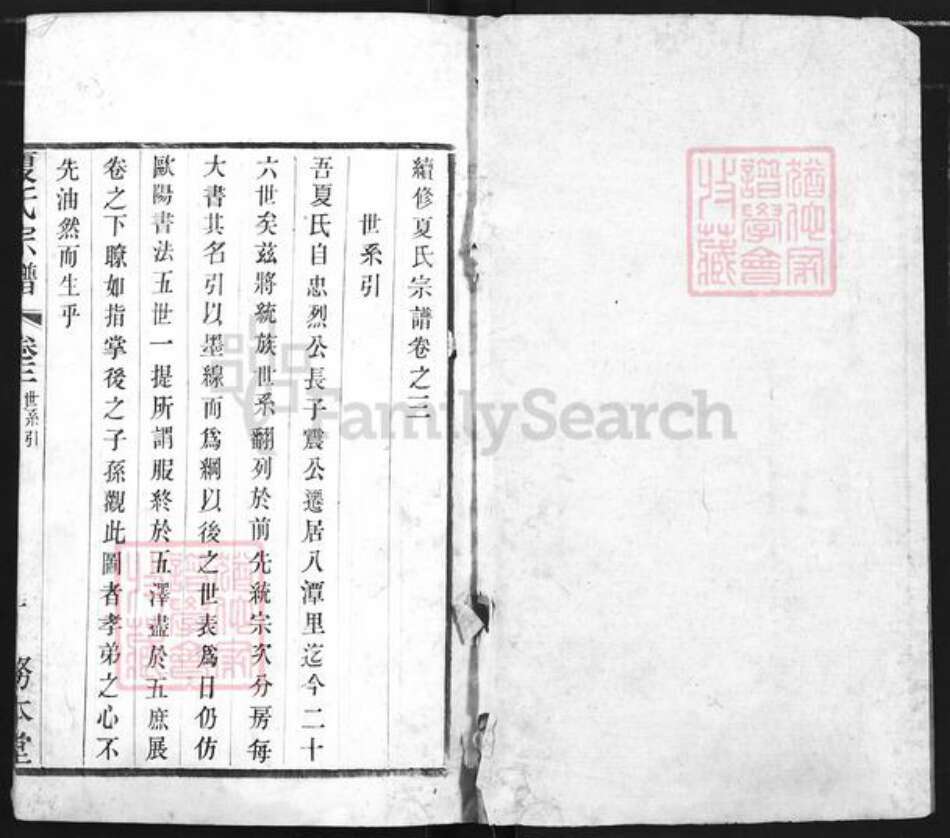 續修夏氏宗譜卷之三
世系引
吾夏氏自忠烈公長子震公遷居八潭里迄今二十
六世矣茲將統族世系翻列於前先統宗次分房每
大書其名引以墨線而爲綱以後之世表爲目仍仿
歐陽書法五世一提所謂服終於五澤盡於五庶展
卷之下瞭如指掌後之子孫觀此圖者孝弟之心不
先油然而生乎
夏氏宗譜
卷三
世系引
一
務本堂
FamilySearch